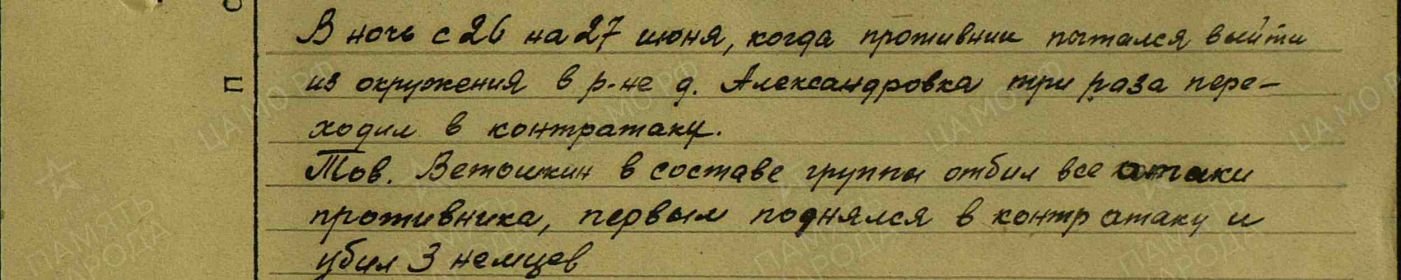 В ночь с 26 на 27 июня, когда противник пытался выйти
из окружения в р-не д. Александровка три раза пере-
ходил в контратаку.
Тов. Ветошкин в составе группы отбил все атаки
противника, первым поднялся в контратаку и
убил 3 немцев